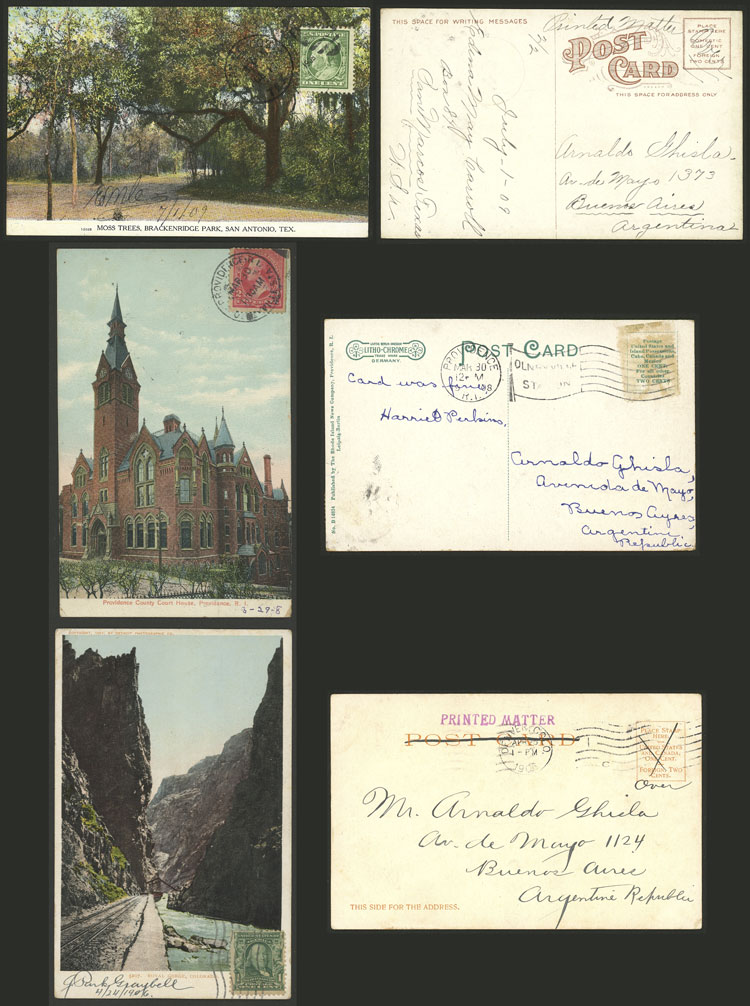 U.S. POSTAGE
ONE CENT
7/1/09
MOSS TREES, BRACKENRIDGE PARK, SAN ANTONIO, TEX.
THIS SPACE FOR WRITING MESSAGES
Printed Matter
POST CARD
THIS SPACE FOR ADDRESS ONLY
PLACE
STAMP HERE
DOMESTIC
ONE CENT
FOREIGN
TWO CENTS
July-1-09
Edna May
San Marcos Texas
U.S.A.
Arnaldo Ghisla
Av. de Mayo 1373
Buenos Aires
Argentina
PROVIDENCE, R.I.
Providence County Court House, Providence, R. I.
3-27-8
LITHO-CHROME
TRADE MARK
GERMANY.
POST CARD
PROVIDENCE
MAR 30
12-M
R.I.
Postage
United States and
Island Possessions,
Cuba, Canada and
Mexico
ONE CENT
For all other
Countries
TWO CENTS
Published by The Rhode Island News Company, Providence, R. I.
Leipzig-Berlin
Card was from
Harriet Perkins,
Arnaldo Ghisla,
Avenida de Mayo,
Buenos Ayres,
Argentine
Republic
ROYAL GORGE, COLORADO
J Park Graybell
4/24/1906.
PRINTED MATTER
POST CARD
DENVER, COLO.
PLACE STAMP
HERE
UNITED STATES
AND CANADA,
ONE CENT.
FOREIGN TWO
CENTS.
Over
Mr. Arnaldo Ghisla
Av. de Mayo 1124
Buenos Aires
Argentine Republic
THIS SIDE FOR THE ADDRESS.